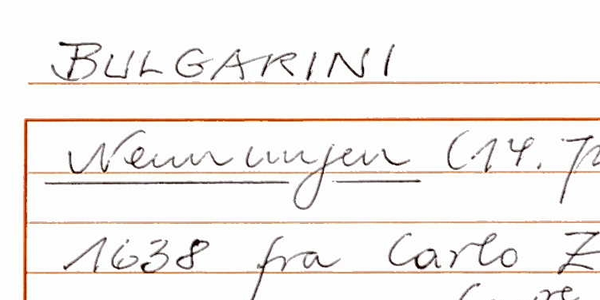 BULGARINI
Nennungen (14.
1638 fra Carlo Z